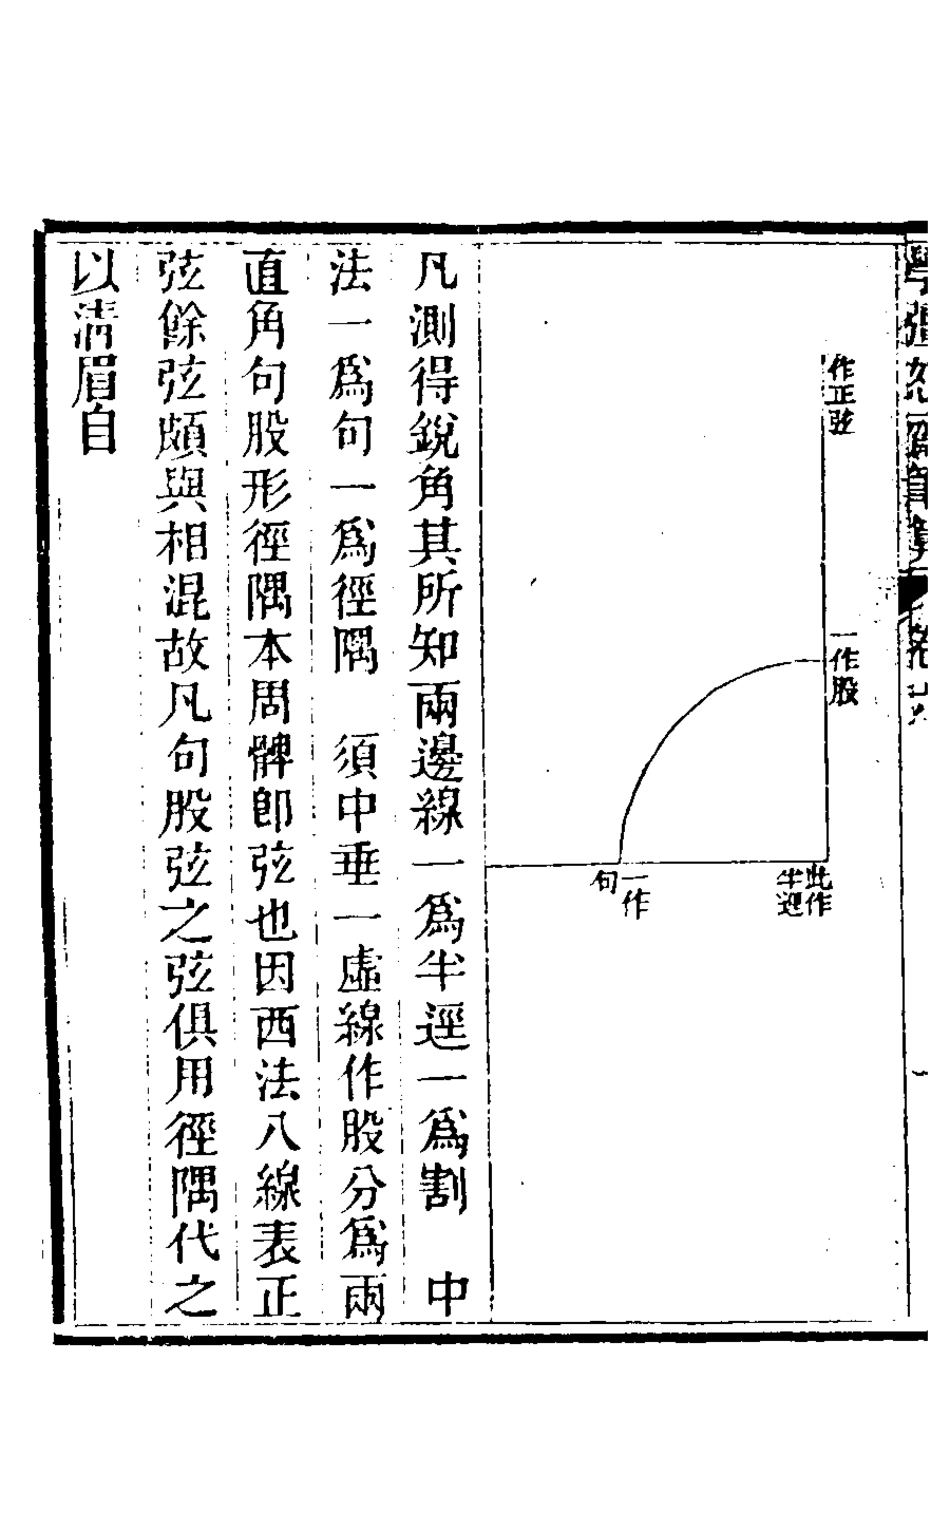 作正弦
一作股
此作
半逕
一作
句
凡測得銳角其所知兩邊線一爲半逕一爲割　中
法一爲句一爲徑隅　須中垂一虛線作股分爲兩
直角句股形徑隅本周髀卽弦也因西法八線表正
弦餘弦頗與相混故凡句股弦之弦俱用徑隅代之
以清眉自